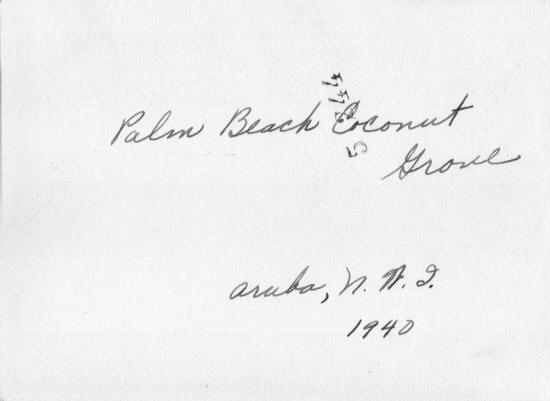 Palm Beach Coconut
Grove
Aruba, N.W.I.
1940